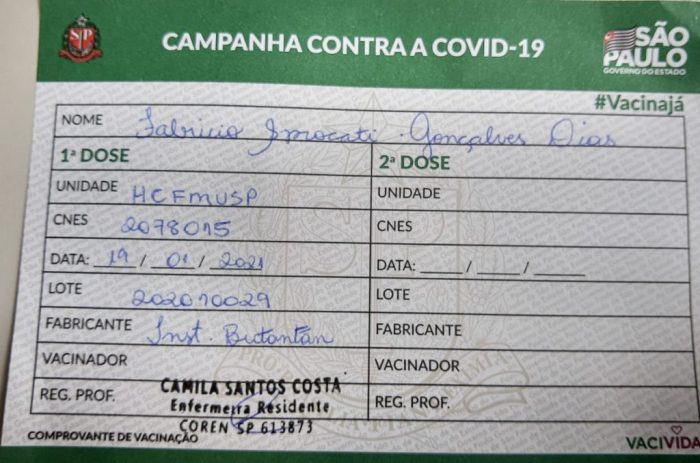 SP
CAMPANHA CONTRA A COVID-19
SÃO
PAULO
GOVERNO DO ESTADO
#Vacinajá
NOME Fabricio Imocati Gonçalves Dias
1ª DOSE
UNIDADE HCFMUSP
CNES 2078015
DATA: 19 / 01 / 2021
LOTE 202010029
FABRICANTE Inst. Butantan
VACINADOR
REG. PROF.
CAMILA SANTOS COSTA
Enfermeira Residente
COREN SP 613873
2ª DOSE
UNIDADE
CNES
DATA: _____ / _____ / ______
LOTE
FABRICANTE
VACINADOR
REG. PROF.
COMPROVANTE DE VACINAÇÃO
VACIVIDA